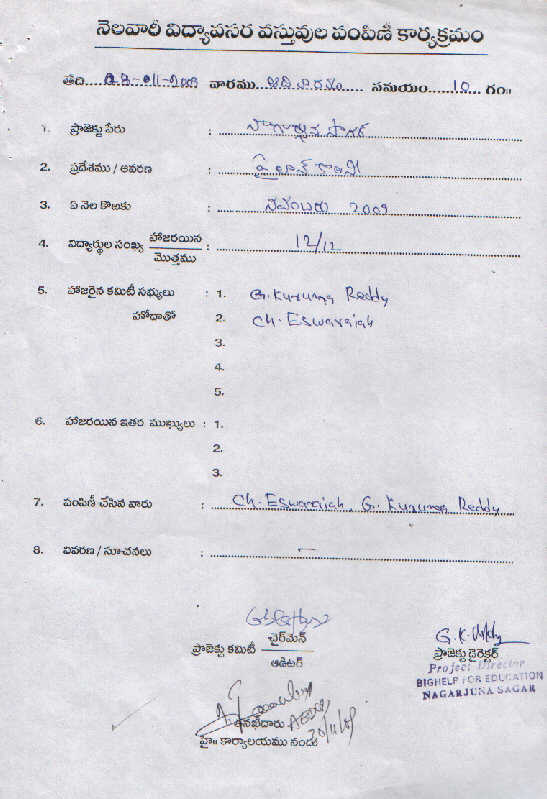 నెలవారీ విద్యాపసర వస్తువుల పంపిణీ కార్యక్రమం
తేది వారము ఆదివారం సమయం 10 గం॥
1. ప్రాజెక్టు పేరు : నాగార్జున సాగర్
2. ప్రదేశము / ఆవరణ : పైలాన్ కాలనీ
3. ఏ నెల కొఱకు : నవంబరు 2009
4. విద్యార్థుల సంఖ్య హాజరయిన / మొత్తము : 12/12
5. హాజరైన కమిటీ సభ్యులు : 1. G. Kuruma Reddy
హోదాతో 2. Ch. Eswaraiah
3.
4.
5.
6. హాజరయిన ఇతర ముఖ్యులు : 1.
2.
3.
7. పంపిణీ చేసిన వారు : Ch. Eswaraiah, G. Kuruma Reddy
8. వివరణ / సూచనలు : —
ప్రాజెక్టు కమిటీ ఛైర్మెన్ / ఆడిటర్
G.K. Reddy
ప్రాజెక్టు డైరెక్టర్
Project Director
BIGHELP FOR EDUCATION
NAGARJUNA SAGAR
హై॥ కార్యాలయము నందు